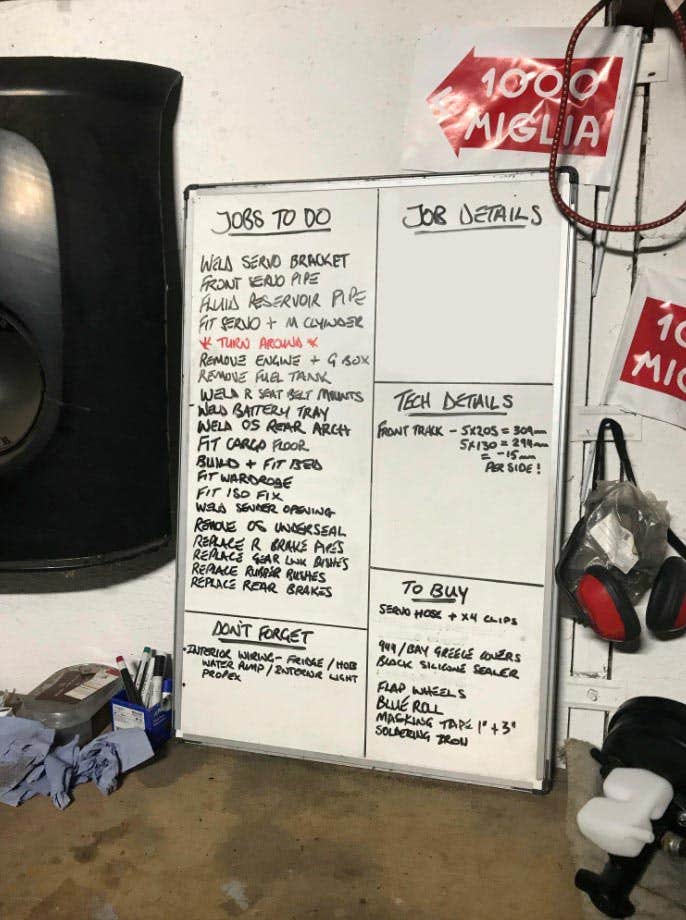 1000
MIGLIA
JOBS TO DO
WELD SERVO BRACKET
FRONT SERVO PIPE
FLUID RESERVOIR PIPE
FIT SERVO + M CLYINDER
* TURN AROUND *
REMOVE ENGINE + G BOX
REMOVE FUEL TANK
WELD R SEAT BELT MOUNTS
- WELD BATTERY TRAY
WELD OS REAR ARCH
FIT CARGO FLOOR
BUILD + FIT BED
FIT WARDROBE
FIT ISO FIX
WELD SENDER OPENING
REMOVE OS UNDERSEAL
REPLACE R BRAKE PIPES
REPLACE GEAR LINK BUSHES
REPLACE RUBBER BUSHES
REPLACE REAR BRAKES
DON'T FORGET
INTERIOR WIRING - FRIDGE / HOB
WATER PUMP / INTERIOR LIGHT
PROPEX
JOB DETAILS
TECH DETAILS
FRONT TRACK - 5X205 = 309mm
5X130 = 294mm
= -15mm
PER SIDE!
TO BUY
SERVO HOSE + X4 CLIPS
944 / BAY GREECE COVERS
BLACK SILICONE SEALER
FLAP WHEELS
BLUE ROLL
MASKING TAPE 1" + 3"
SOLDERING IRON
10
MIG